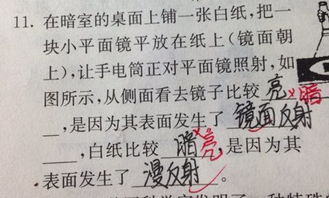 11. 在暗室的桌面上铺一张白纸,把一
块小平面镜平放在纸上(镜面朝
上),让手电筒正对平面镜照射,如
图所示,从侧面看去镜子比较 亮 暗
,是因为其表面发生了 镜面反射
,白纸比较 暗 亮,是因为其
表面发生了 漫反射 。